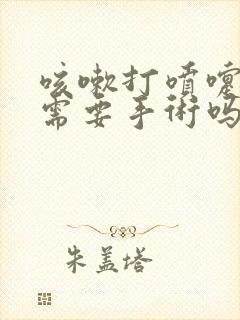 咳嗽打喷嚏
需要手術吗
朱盖塔